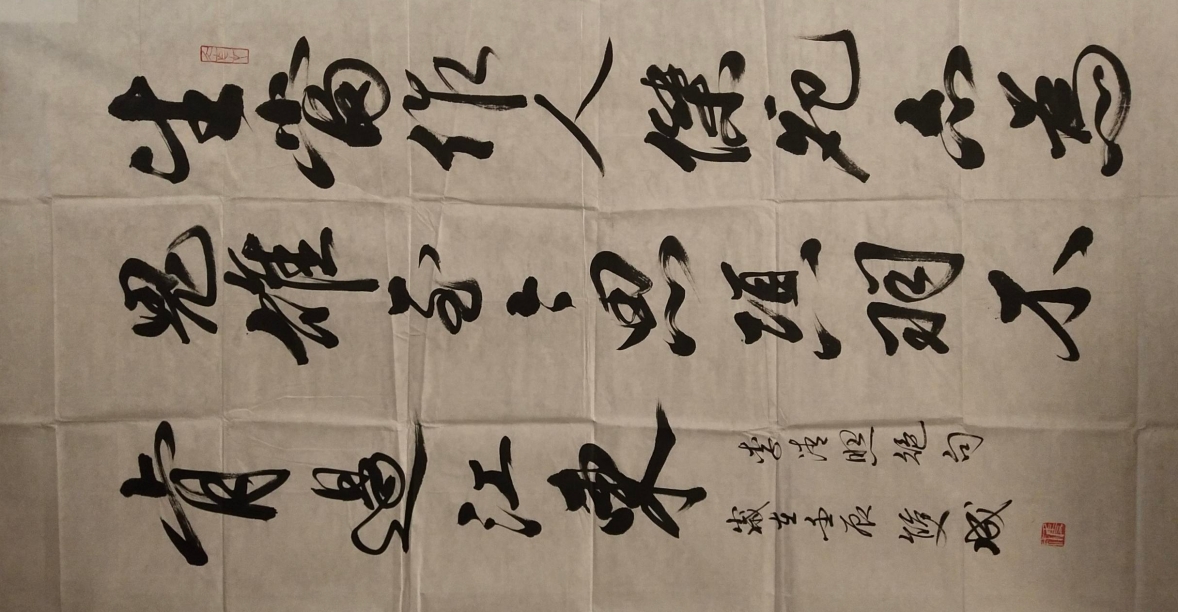 生當作人傑死亦為
鬼雄至今思項羽不
肯過江東
李清照絕句
歲在壬辰